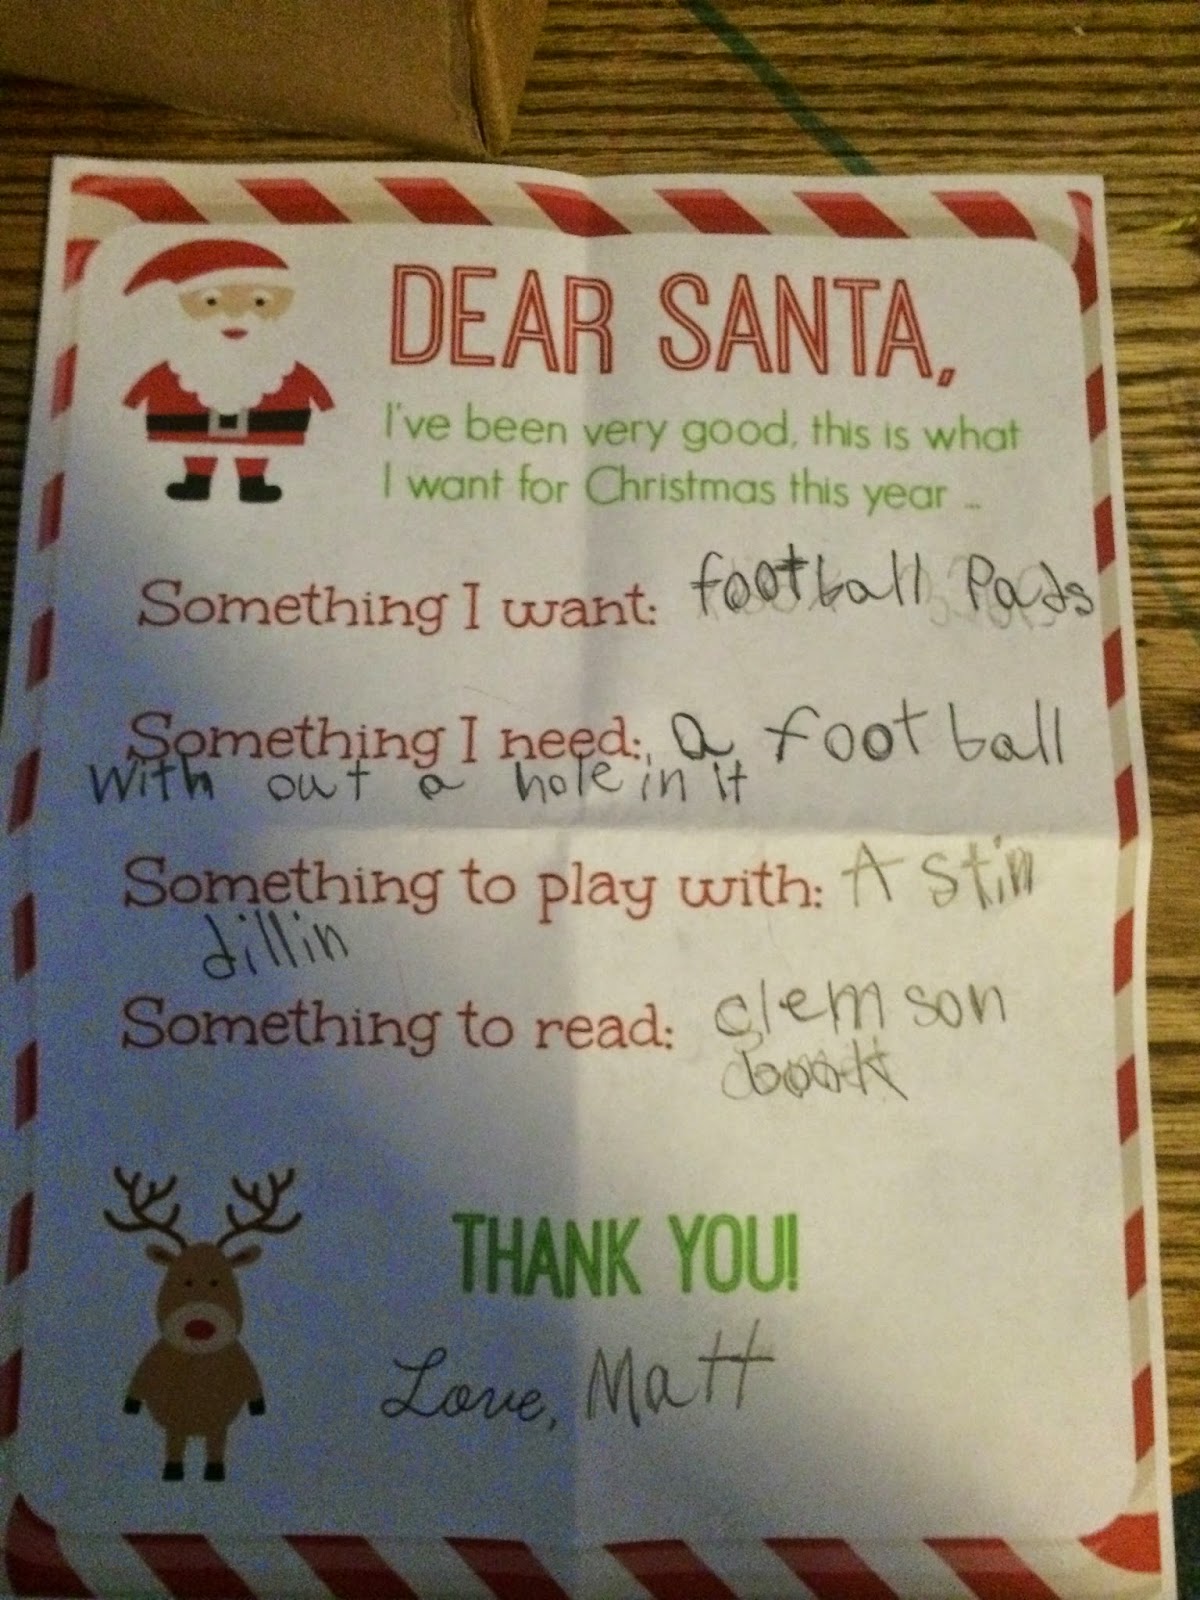 DEAR SANTA,
I've been very good, this is what
I want for Christmas this year ...
Something I want: football Pads
Something I need: a football
with out a hole in it
Something to play with: A stin
dillin
Something to read: clemson
book
THANK YOU!
Love, Matt